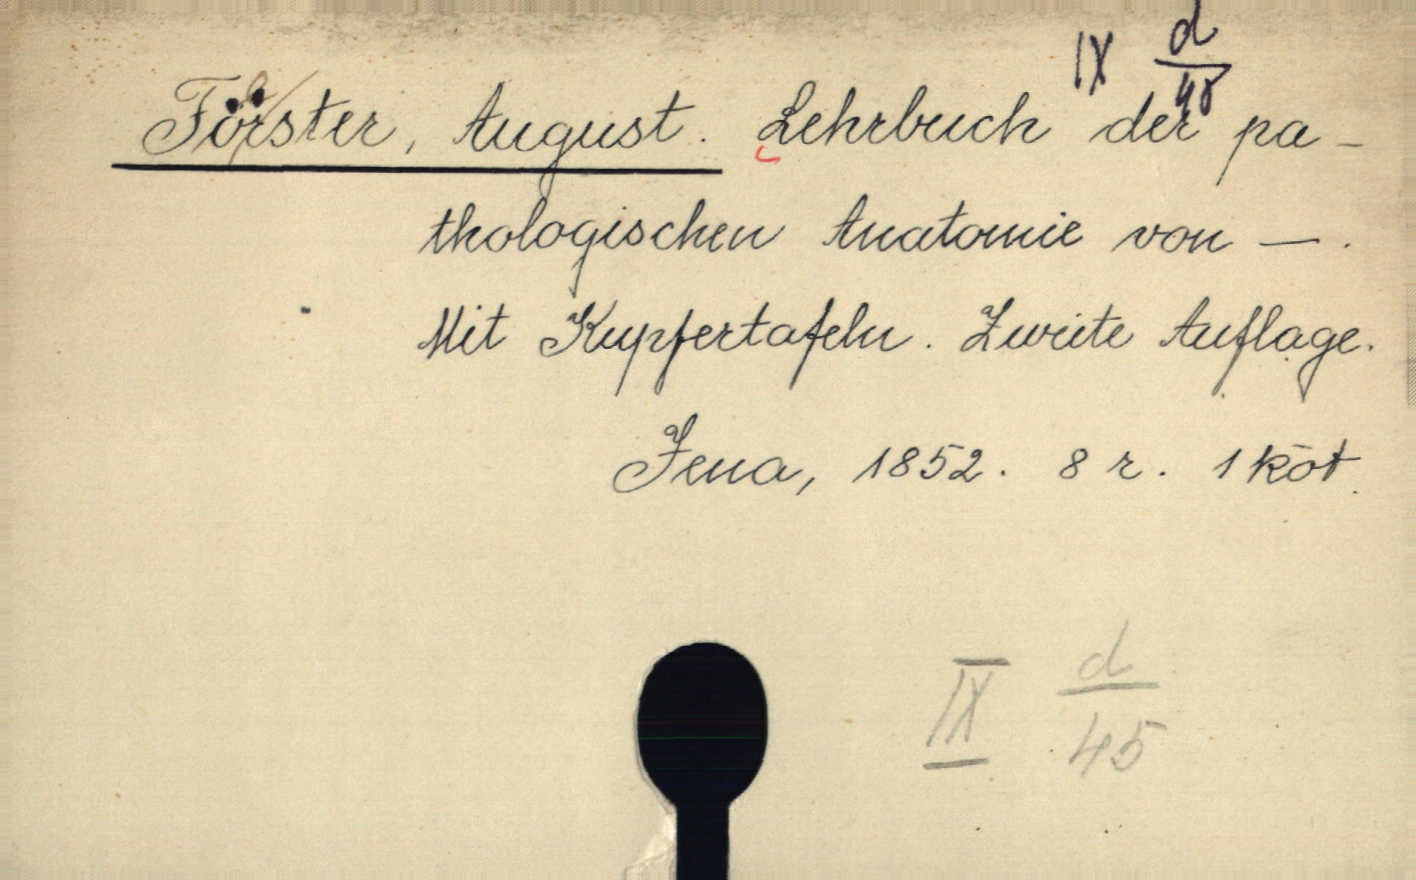 IX d/48
Förster, August. Lehrbuch der pa-
thologischen Anatomie von —.
Mit Kupfertafeln. Zweite Auflage.
Jena, 1852. 8 r. 1 köt.
IX d/45